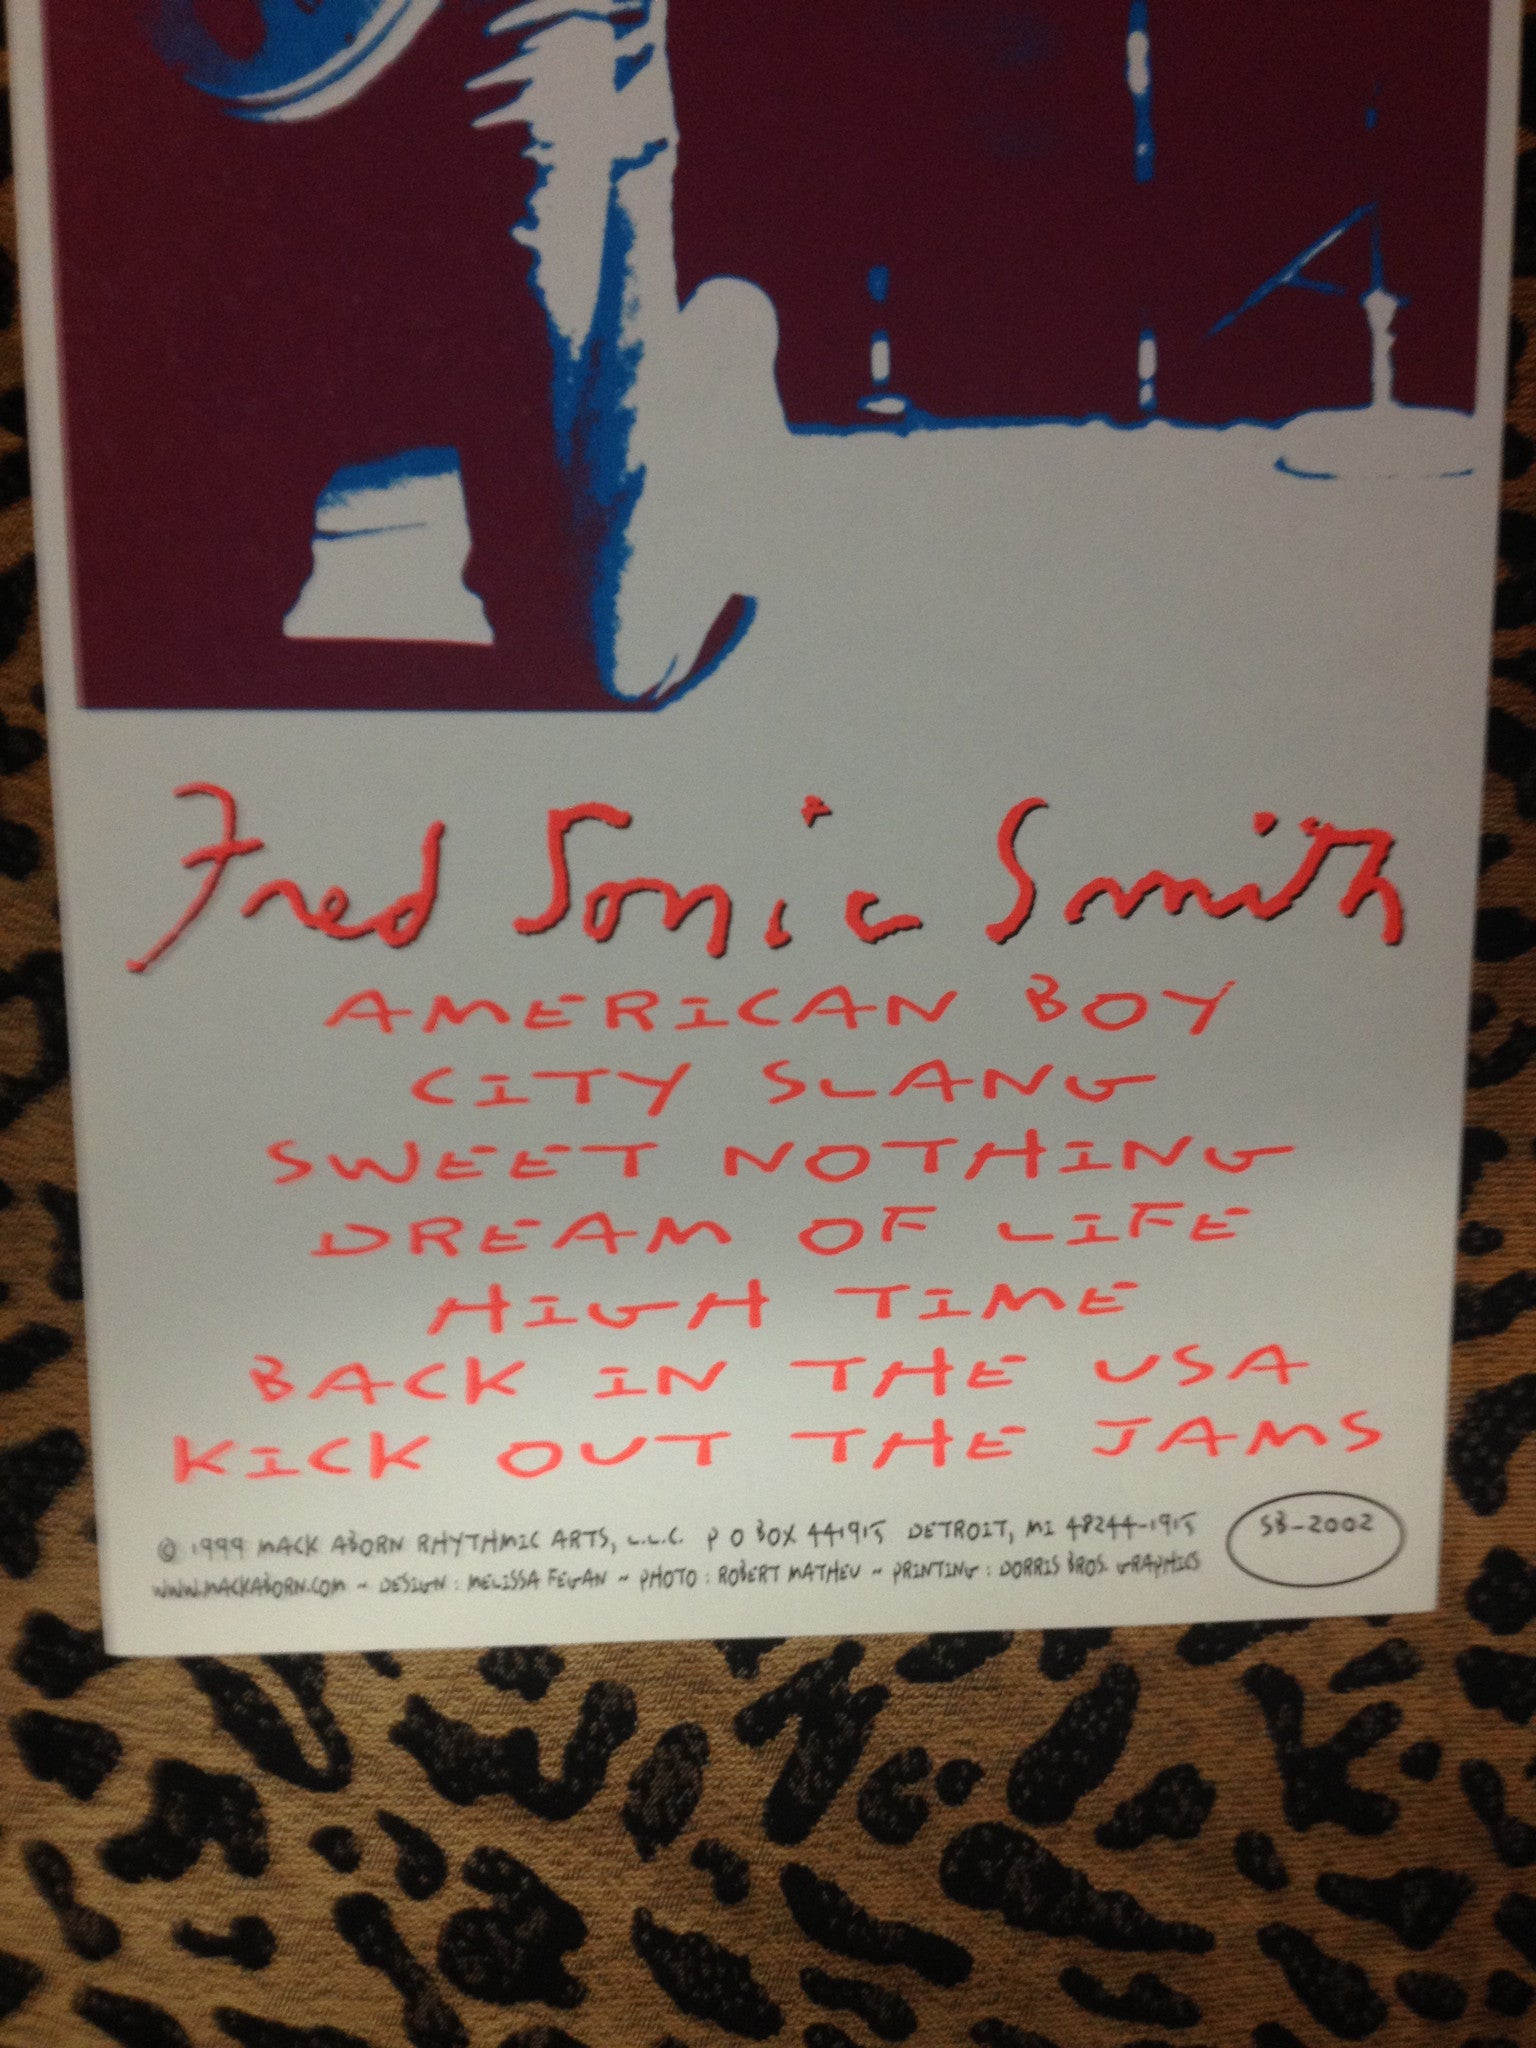 Fred Sonic Smith
AMERICAN BOY
CITY SLANG
SWEET NOTHING
DREAM OF LIFE
HIGH TIME
BACK IN THE USA
KICK OUT THE JAMS
© 1999 MACK ABORN RHYTHMIC ARTS, L.L.C. P O BOX 441915 DETROIT, MI 48244-1915
WWW.MACKABORN.COM ~ DESIGN : MELISSA FEGAN ~ PHOTO : ROBERT MATHEU ~ PRINTING : DORRIS BROS. GRAPHICS
SB-2002